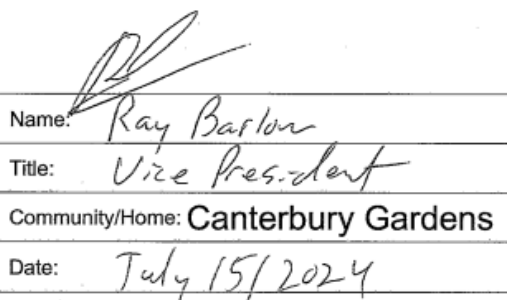 Name: Ray Barlow
Title: Vice President
Community/Home: Canterbury Gardens
Date: July 15/2024